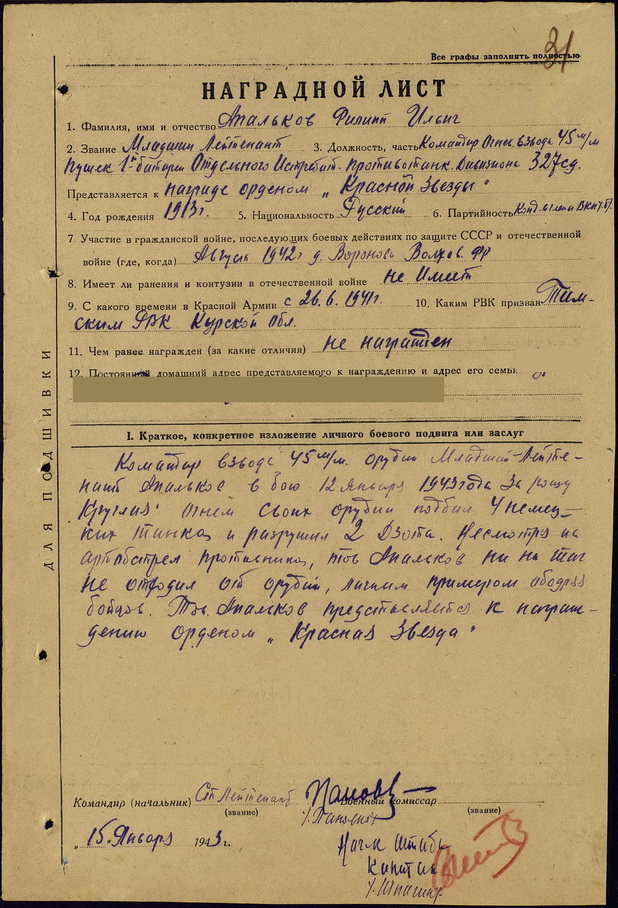 31
Все графы заполнять полностью
НАГРАДНОЙ ЛИСТ
1. Фамилия, имя и отчество Апальков Филипп Ильич
2. Звание Младший Лейтенант 3. Должность, часть Командир Огнев. взвода 45 м/м
пушек 1й батареи Отдельного Истребит. противотанк. Дивизиона 327 сд.
Представляется к награде орденом „Красной Звезды"
4. Год рождения 1913 г. 5. Национальность Русский 6. Партийность Канд. в члены ВКП(б)
7 Участие в гражданской войне, последующих боевых действиях по защите СССР и отечественной
войне (где, когда) Август 1942 г д. Вороново Волхов. фр
8. Имеет ли ранения и контузии в отечественной войне не Имеет
9. С какого времени в Красной Армии с 26.6.1941г. 10. Каким РВК призван Тим-
ским РВК Курской Обл.
11. Чем ранее награжден (за какие отличия) не награжден
12. Постоянный домашний адрес представляемого к награждению и адрес его семьи
ДЛЯ ПОДШИВКИ
I. Краткое, конкретное изложение личного боевого подвига или заслуг
Командир взвода 45 м/м. орудий Младший Лейте-
нант Апальков в бою 12 Января 1943 года за рощу
Круглая огнем своих орудий подбил 4 немец-
ких танка и разрушил 2 Дзота. Несмотря на
артобстрел противника, тов Апальков ни на шаг
не отходил от орудий, личным примером ободряя
бойцов. Тов. Апальков представляется к награж-
дению орденом „Красная Звезда"
Командир (начальник) Ст Лейтенант Военный комиссар
(звание) (звание)
„15 Января 1943 г.
Нач штаба
Капитан